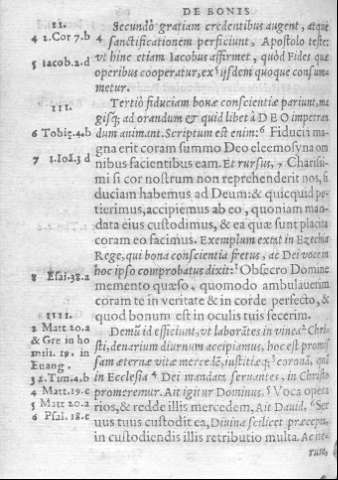 DE BONIS
II.
4 1.Cor 7.b
5 Iacob.2.d
III.
6 Tobię.4.b
7 1.Ioã.3 d
8 Esai.38.a
IIII.
2 Matt 20.a
& Gre in ho
mili. 19. in
Euang.
3 2.Tim.4.b
4 Matt.19.c
5 Matt 20.a
6 Psal. 18.c
Secundò gratiam credentibus augent, atque
4 sanctificationem perficiunt, Apostolo teste:
vt hinc etiam Iacobus affirmet, quòd Fides quæ
operibus cooperatur, ex ijsdem quoque consum-
metur.
Tertiò fiduciam bonæ conscientiæ pariunt, ma
gisq; ad orandum & quid libet à DEO impetran
dum animant. Scriptum est enim: 6 Fiducia ma
gna erit coram summo Deo eleemosyna om
nibus facientibus eam. Et rursus, 7 Charissi
mi si cor nostrum non reprehenderit nos, fi
duciam habemus ad Deum: & quicquid pe
tierimus, accipiemus ab eo, quoniam man-
data eius custodimus, & ea quæ sunt placita
coram eo facimus. Exemplum extat in Ezechia
Rege, qui bona conscientia fretus, ac Dei vocem
hoc ipso comprobatus dixit: 8 Obsecro Domine
memento quæso, quomodo ambulauerim
coram te in veritate & in corde perfecto, &
quod bonum est in oculis tuis fecerim.
Demũ id efficiunt, vt laborãtes in vinea 2 Chri-
sti, denarium diurnum accipiamus, hoc est promis
sam æternæ vitæ mercedẽ, iustitiæq; 3 coronã, quã
in Ecclesia 4 Dei mandata seruantes, in Christo
promeremur. Ait igitur Dominus, 5 Voca opera
rios, & redde illis mercedem. Ait Dauid, 6 Ser
uus tuus custodit ea, Diuina scilicet præcepta,
in custodiendis illis retributio multa. Ac ite-
rum,